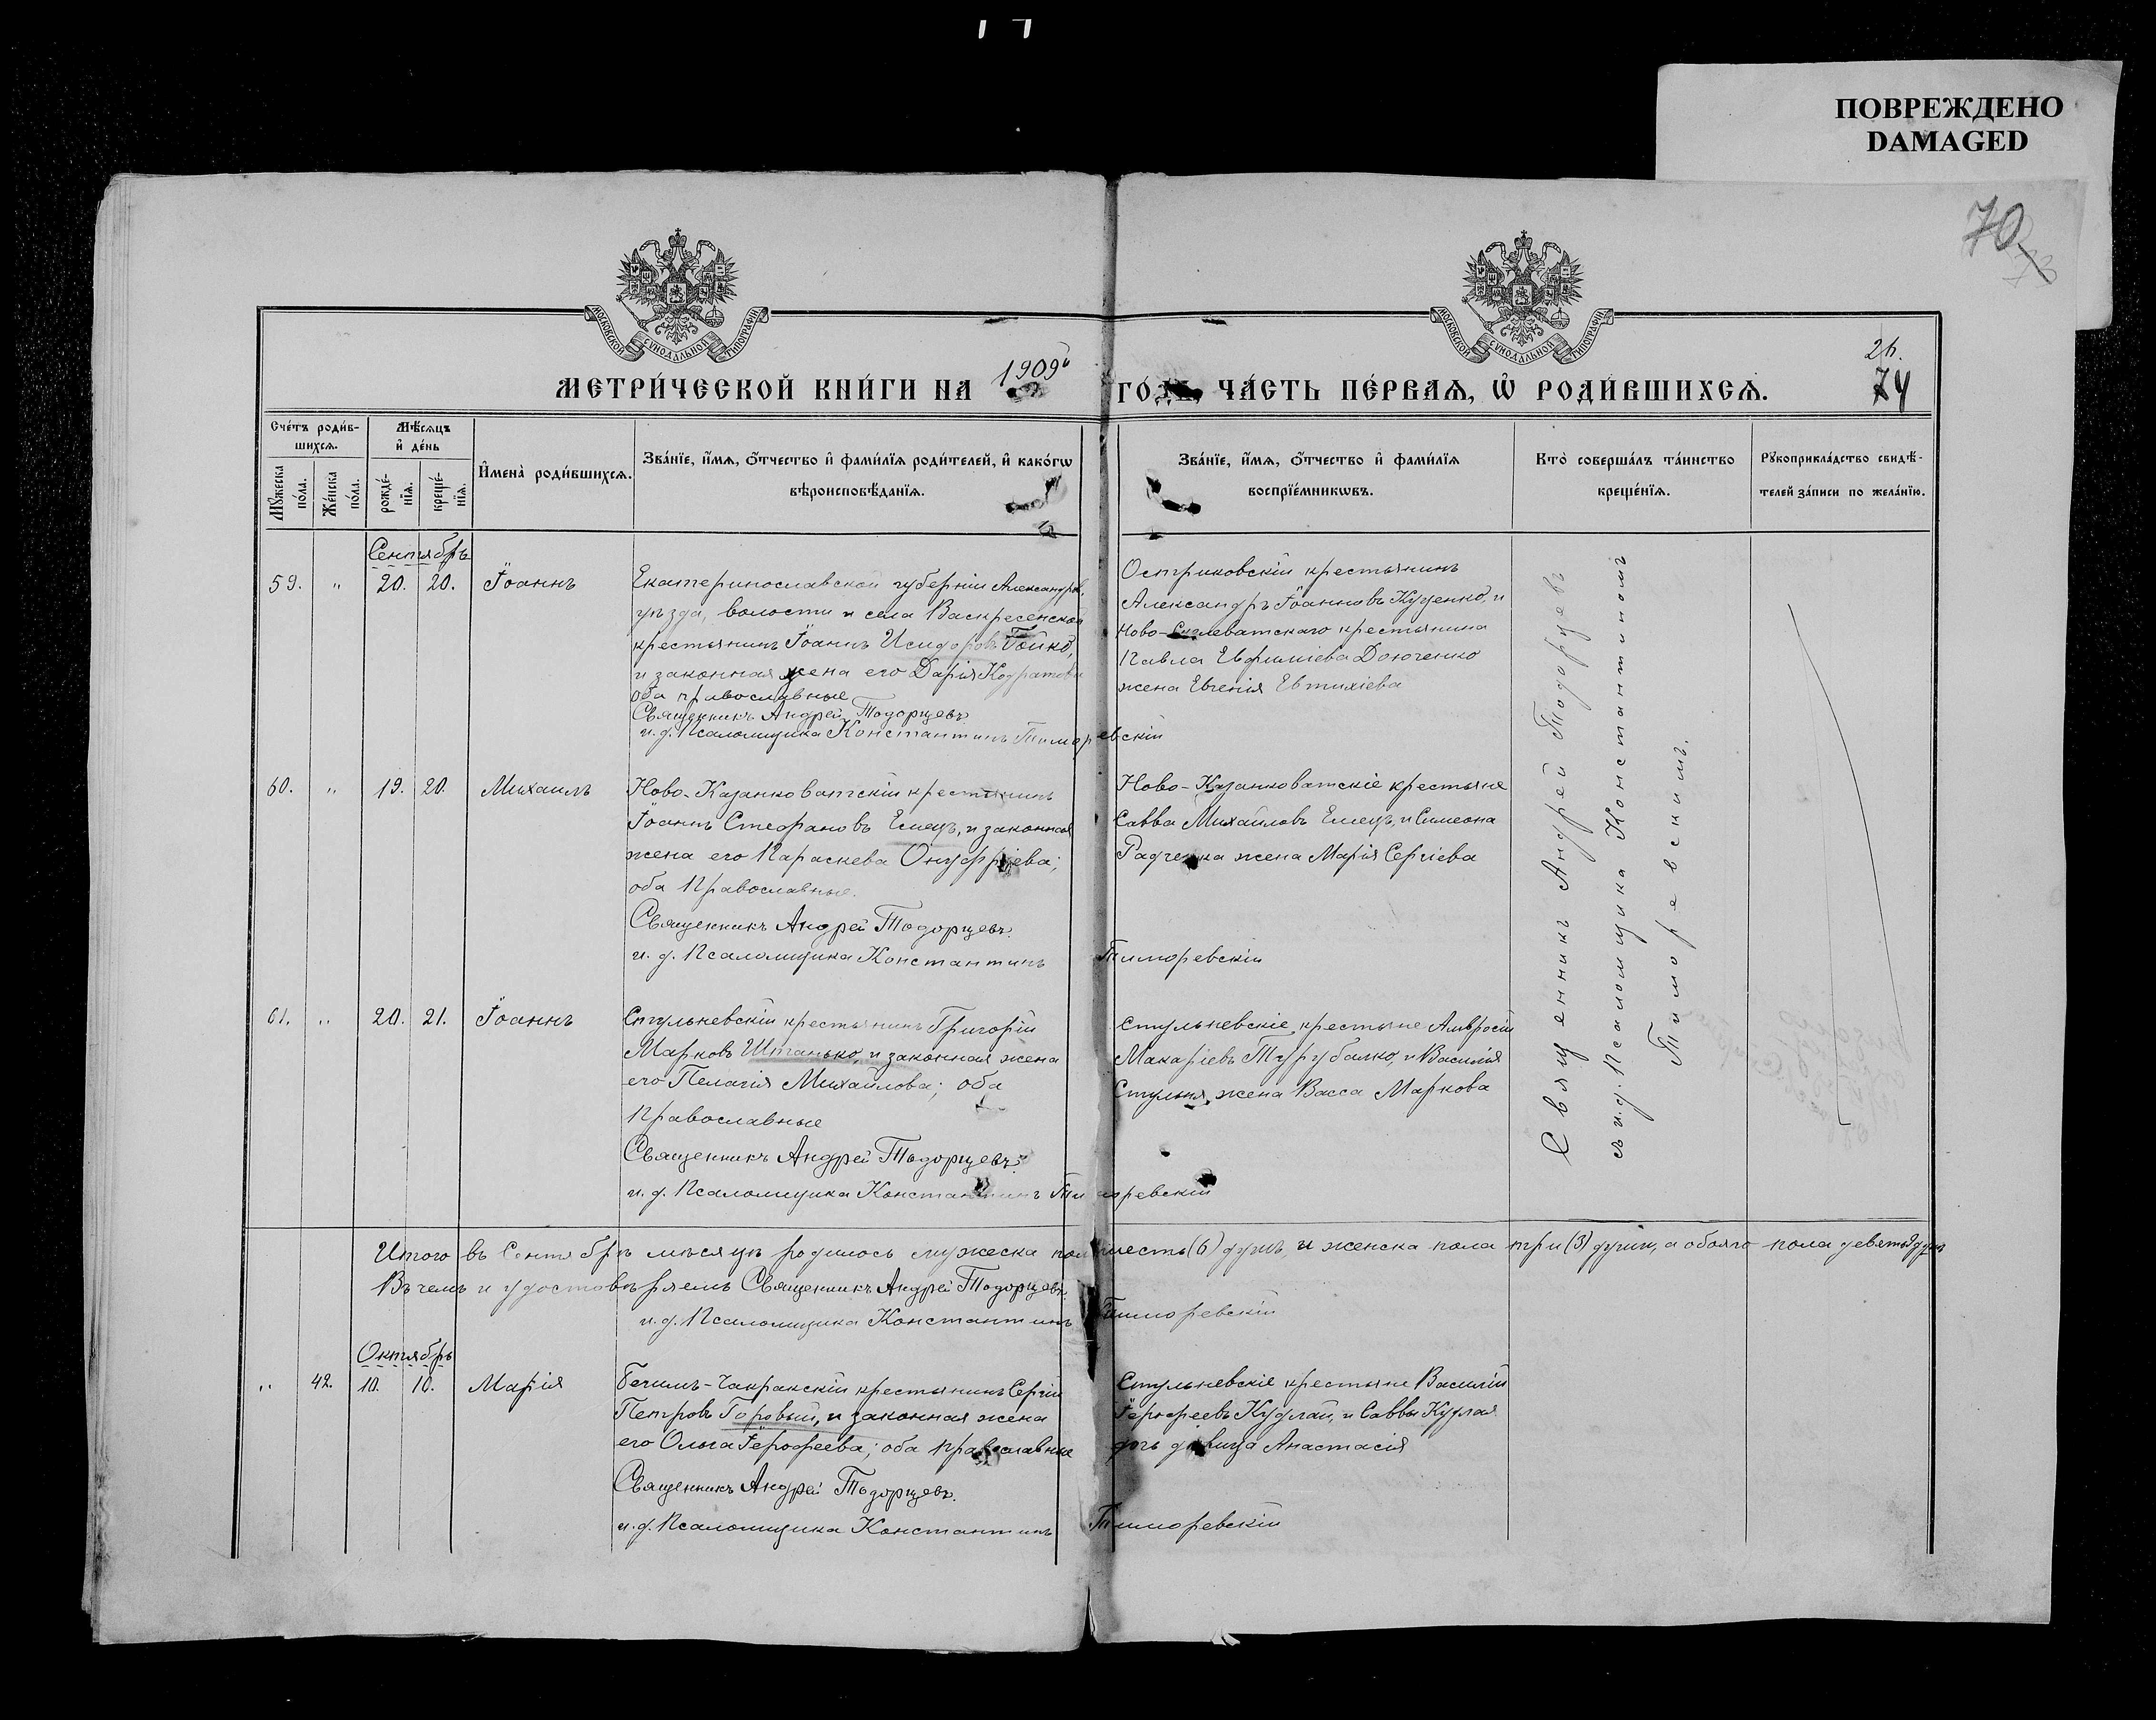 ПОВРЕЖДЕНО
DAMAGED
70
МОСКОВСКОЙ СѴНОДАЛЬНОЙ ТИПОГРАФІИ
МОСКОВСКОЙ СѴНОДАЛЬНОЙ ТИПОГРАФІИ
26.
74
МЕТРИ́ЧЕСКОЙ КНИ́ГИ НА 1909й ГО́ ЧА́СТЬ ПЕ́РВАЯ, Ѡ РОДИ́ВШИХСЯ.
Сче́тъ роди́в-
шихся.
Мꙋ́жеска
по́ла.
Же́нска
по́ла.
Мѣ́сяцъ
и҆ де́нь
рожде́-
нїя.
креще́-
нїя.
И҆мена̀ роди́вшихся.
Зва́нїе, и҆́мя, о҆́тчество и҆ фами́лїя роди́телей, и҆ како́гѡ
вѣроисповѣ́данїя.
Зва́нїе, и҆́мя, о҆́тчество и҆ фами́лїя
воспрїе́мникѡвъ.
Кто̀ соверша́лъ та́инство
креще́нїя.
Рꙋкоприкла́дство свидѣ́-
телей за́писи по жела́нїю.
Сентябрь
59. " 20. 20. Іоаннъ
Екатеринославской губерніи Александров.
уѣзда, волости и села Васкресенской
крестьянинъ Іоаннъ Исидоровъ Бойко,
и законная жена его Дарія Кодратова
оба православные
Священникъ Андрей Тодорцевъ
и. д. Псаломщика Константинъ Тиморевскій
Остриковскій крестьянинъ
Александръ Іоанновъ Куценко, и
Ново- крестьянина
Павла Евфиміева Доюченко
жена Евгенія Евтихіева
60. " 19. 20. Михаилъ
Ново-Казанковатскій крестьянинъ
Іоаннъ Стефановъ Емецъ, и законная
жена его Параскева Онуфріева;
оба Православные.
Священникъ Андрей Тодорцевъ.
и. д. Псаломщика Константинъ Тиморевскій
Ново-Казанковатскіе крестьяне
Савва Михайловъ Емецъ, и Симеона
Радченка жена Марія Сергіева
61. " 20. 21. Іоаннъ
Стульневскій крестьянинъ Григорій
Марковъ Штанько, и законная жена
его Пелагія Михайлова; оба
Православные
Священникъ Андрей Тодорцевъ
и. д. Псаломщика Константинъ Тиморевскій
Стульневскіе крестьяне Амвросій
Макаріевъ Турубалко, и Василія
Стульня жена Васса Маркова
Священникъ Андрей Тодорцевъ
съ и. д. Псаломщика Константиномъ
Тиморевскимъ.
Итого въ Сентябрѣ мѣсяцѣ родилось мужеска пола шесть (6) душъ, и женска пола три (3) души, а обоего пола девять душъ
Въ чемъ и удостовѣряемъ Священникъ Андрей Тодорцевъ.
и. д. Псаломщика Константинъ Тиморевскій
Октябрь
" 42. 10. 10. Марія
Бегимъ-Чакракскій крестьянинъ Сергій
Петровъ Горовый, и законная жена
его Ольга Іерофеева; оба православные
Священникъ Андрей Тодорцевъ.
и. д. Псаломщика Константинъ Тиморевскій
Стульневскіе крестьяне Василій
Іерофеевъ Кудлай, и Саввы Кудлая
дочь дѣвица Анастасія